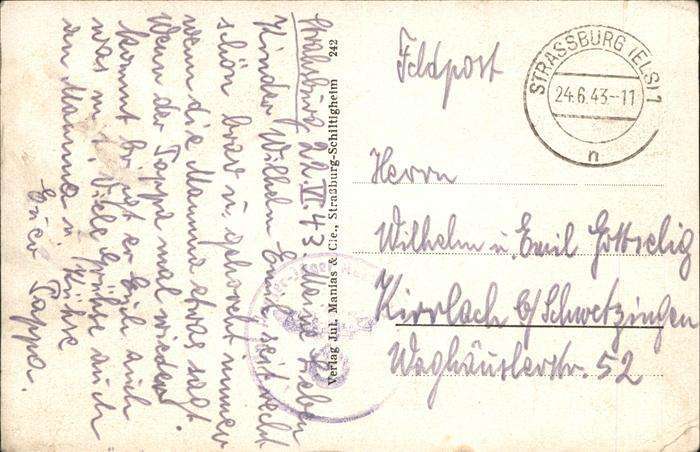 Straßburg 22.VI.43. Meine Lieben
Kinder Wilhelm Emil seit recht
schön brav u. gehorcht immer
wenn die Mamma etwas sagt
Wenn der Pappa mal wieder
kommt bringt er Euch auch
was mit. Viele Grüße auch
an Mamma u. Küße
Euer Pappa.
Verlag Jul. Manias & Cie., Straßburg-Schiltigheim 242
Feldpost
STRASSBURG (ELS) 1
24.6.43--11
n
Herrn
Wilhelm u. Emil Gottselig
Kirrlach b/Schwetzingen
Waghäuslerstr. 52